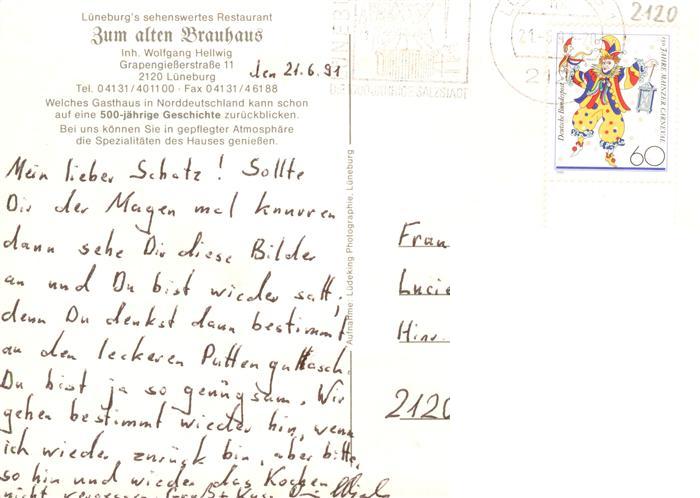 Lüneburg's sehenswertes Restaurant
Zum alten Brauhaus
Inh. Wolfgang Hellwig
Grapengießerstraße 11
2120 Lüneburg
Tel. 04131/401100 · Fax 04131/46188
Welches Gasthaus in Norddeutschland kann schon
auf eine 500-jährige Geschichte zurückblicken.
Bei uns können Sie in gepflegter Atmosphäre
die Spezialitäten des Hauses genießen.
den 21.6.91
Mein lieber Schatz! Sollte
Dir der Magen mal knurren
dann sehe Dir diese Bilder
an und Du bist wieder satt,
denn Du denkst dann bestimmt
an den leckeren Puttengulasch.
Du bist ja so genügsam. Wir
gehen bestimmt wieder hin, wenn
ich wieder zurück bin, aber bitte,
so hin und wieder das Kochen
nicht vergessen
Aufnahme: Lüdeking Photographie, Lüneburg
2120
Deutsche Bundespost
150 JAHRE MAINZER CARNEVAL
60
Frau
Lucie
Hinr.
2120